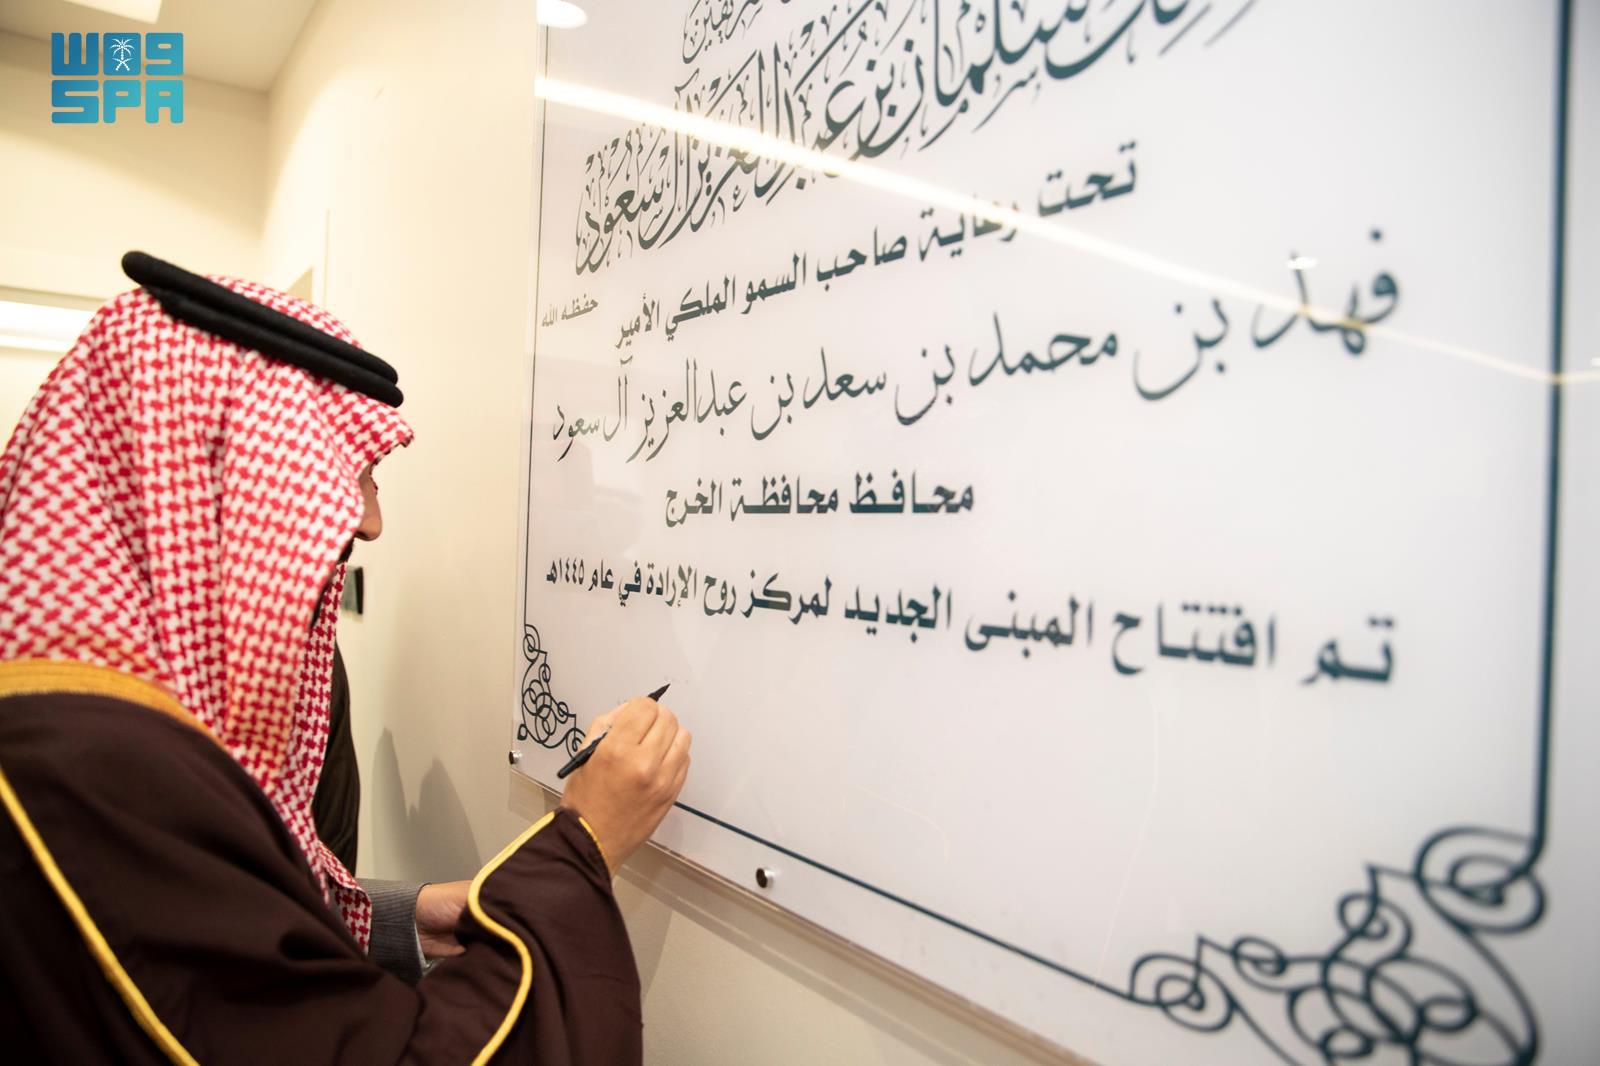 واس
SPA
سلمان بن عبدالعزيز آل سعود
حفظه الله
تحت رعاية صاحب السمو الملكي الأمير
فهد بن محمد بن سعد بن عبدالعزيز آل سعود
محافظ محافظة الخرج
تم افتتاح المبنى الجديد لمركز روح الإرادة في عام ١٤٤٥هـ